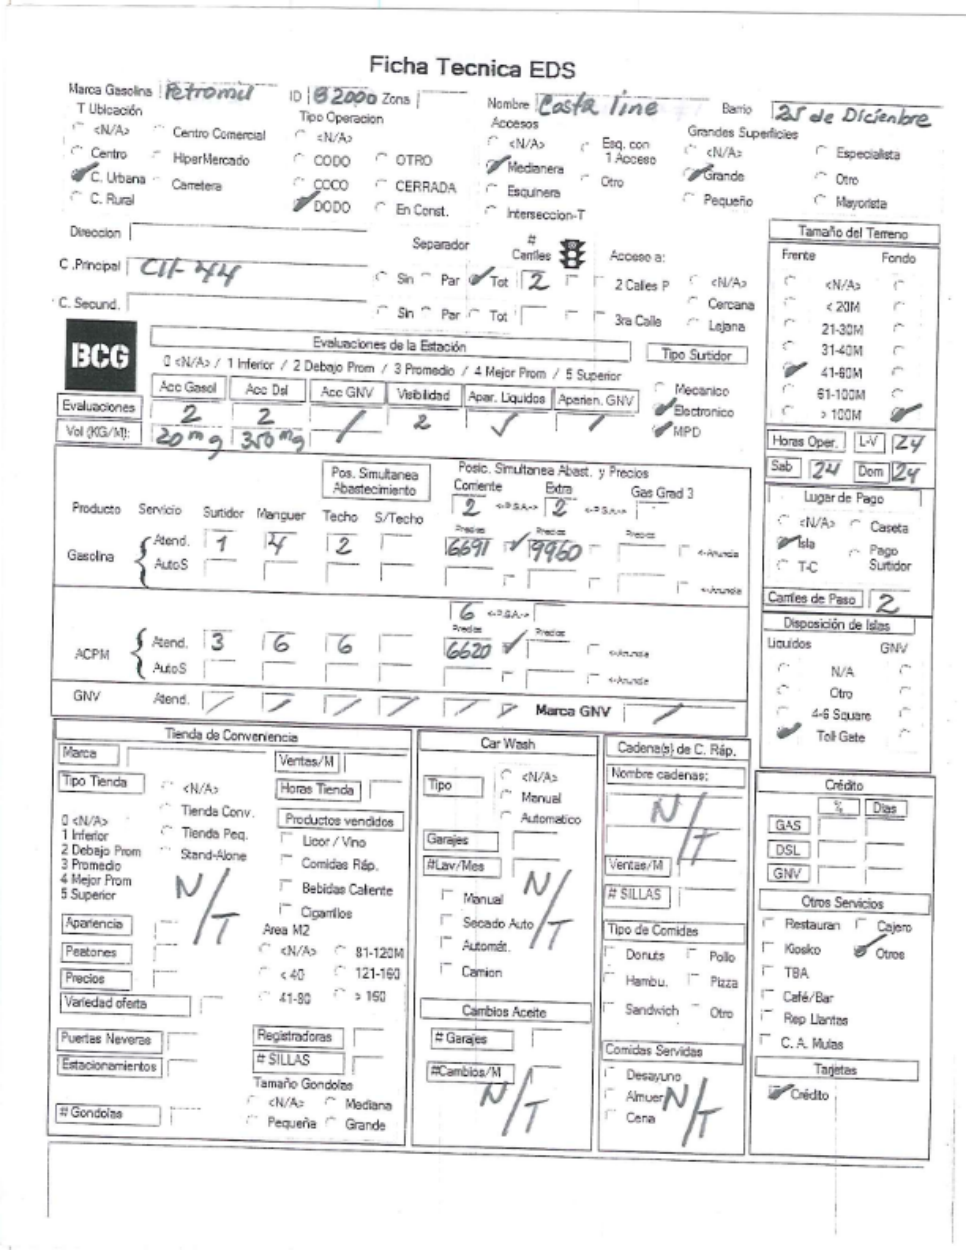 Ficha Tecnica EDS
Marca Gasolina Petromil ID 82000 Zona Nombre Costa line Barrio 25 de Diciembre
T Ubicación Tipo Operacion Accesos Grandes Superficies
<N/A> Centro Comercial <N/A> <N/A> Esq. con 1 Acceso <N/A> Especialista
Centro HiperMercado CODO OTRO Medianera Otro Grande Otro
C. Urbana Carretera COCO CERRADA Esquinera Pequeño Mayorista
C. Rural DODO En Const. Interseccion-T
Direccion Separador # Carriles Acceso a: Tamaño del Terreno
C .Principal Cll-44 Sin Par Tot 2 2 Calles P <N/A> Cercana
C. Secund. Sin Par Tot 3ra Calle Lejana
Frente Fondo
<N/A>
< 20M
21-30M
31-40M
41-60M
61-100M
> 100M
BCG
Evaluaciones de la Estación Tipo Surtidor
0 <N/A> / 1 Inferior / 2 Debajo Prom / 3 Promedio / 4 Mejor Prom / 5 Superior
Acc Gasol Acc Dsl Acc GNV Visibilidad Apar. Liquidos Aparien. GNV
Mecanico
Electronico
MPD
Evaluaciones 2 2 / 2 ✓ /
Vol (KG/M): 20 mg 350 mg
Horas Oper. L-V 24
Sab 24 Dom 24
Pos. Simultanea Abastecimiento Posic. Simultanea Abast. y Precios
Corriente Extra Gas Grad 3
2 <-P.S.A.-> 2 <-P.S.A.->
Producto Servicio Surtidor Manguer Techo S/Techo Precios Precios Precios
Gasolina Atend. 1 4 2 6691 ✓ 9960 <-Anuncia
AutoS <-Anuncia
6 <-P.S.A.->
Precios Precios
ACPM Atend. 3 6 6 6620 ✓ <-Anuncia
AutoS <-Anuncia
GNV Atend. / / / / / / Marca GNV /
Lugar de Pago
<N/A> Caseta
Isla Pago Surtidor
T-C
Carriles de Paso 2
Disposición de Islas
Liquidos GNV
N/A
Otro
4-6 Square
Toll Gate
Tienda de Conveniencia
Marca Ventas/M
Tipo Tienda <N/A> Horas Tienda
Tienda Conv. Productos vendidos
0 <N/A>
1 Inferior Tienda Peq. Licor / Vino
2 Debajo Prom Stand-Alone Comidas Ráp.
3 Promedio
4 Mejor Prom Bebidas Caliente
5 Superior Cigarrillos
N/T
Apariencia Area M2
Peatones <N/A> 81-120M
Precios < 40 121-160
Variedad oferta 41-80 > 160
Puertas Neveras Registradoras
Estacionamientos # SILLAS
Tamaño Gondolas
<N/A> Mediana
# Gondolas Pequeña Grande
Car Wash
Tipo <N/A>
Manual
Automatico
Garajes
#Lav/Mes
Manual N/T
Secado Auto
Automát.
Camion
Cambios Aceite
# Garajes
#Cambios/M
N/T
Cadena(s) de C. Ráp.
Nombre cadenas:
N/T
Ventas/M
# SILLAS
Tipo de Comidas
Donuts Pollo
Hambu. Pizza
Sandwich Otro
Comidas Servidas
Desayuno
Almuer N/T
Cena
Crédito
% Dias
GAS
DSL
GNV
Otros Servicios
Restauran Cajero
Kiosko Otros
TBA
Café/Bar
Rep Llantas
C. A. Mulas
Tarjetas
Crédito